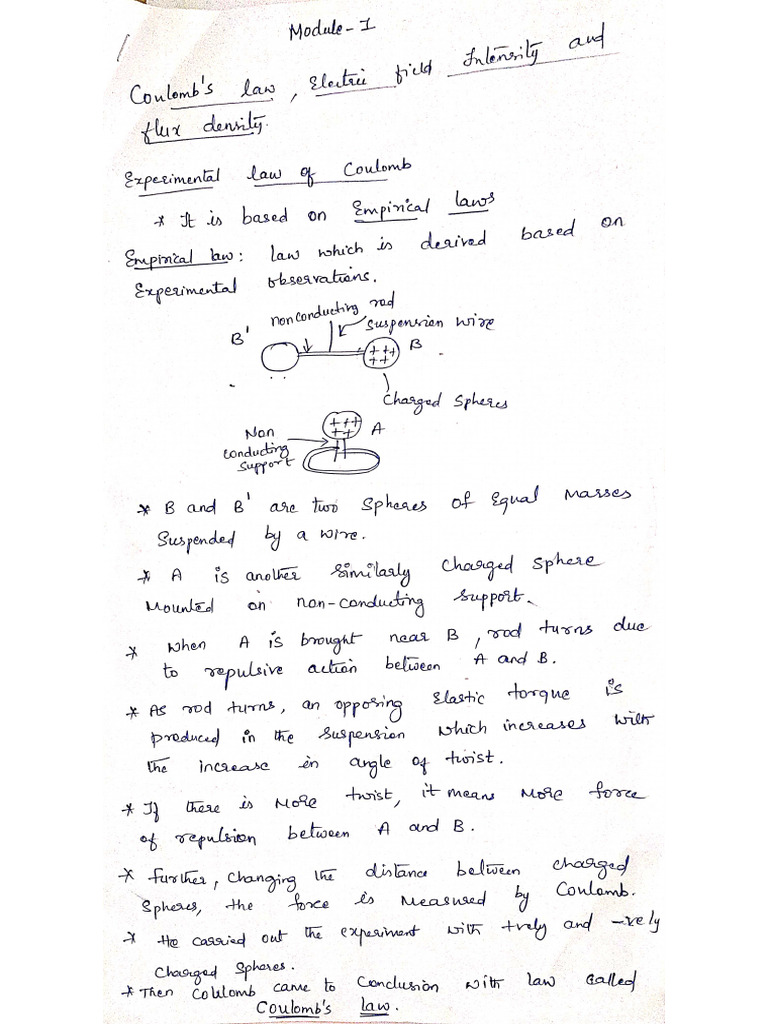 Module-1
Coulomb's law, Electric field Intensity and
flux density.
Experimental law of Coulomb
* It is based on Empirical laws
Empirical law: law which is derived based on
Experimental observations.
nonconducting rod
suspension wire
B'
B
+++
++
Charged Spheres
+++
++
A
Non
conducting
support
* B and B' are two Spheres of Equal Masses
Suspended by a wire.
* A is another similarly Charged Sphere
Mounted on non-conducting support.
* When A is brought near B, rod turns due
to repulsive action between A and B.
* As rod turns, an opposing Elastic torque is
produced in the suspension which increases with
the increase in angle of twist.
* If there is More twist, it means More force
of repulsion between A and B.
* further, changing the distance between charged
Spheres, the force is Measured by Coulomb.
* He carried out the experiment with +vely and -vely
Charged Spheres.
* Then Coulomb came to Conclusion with law called
Coulomb's law.